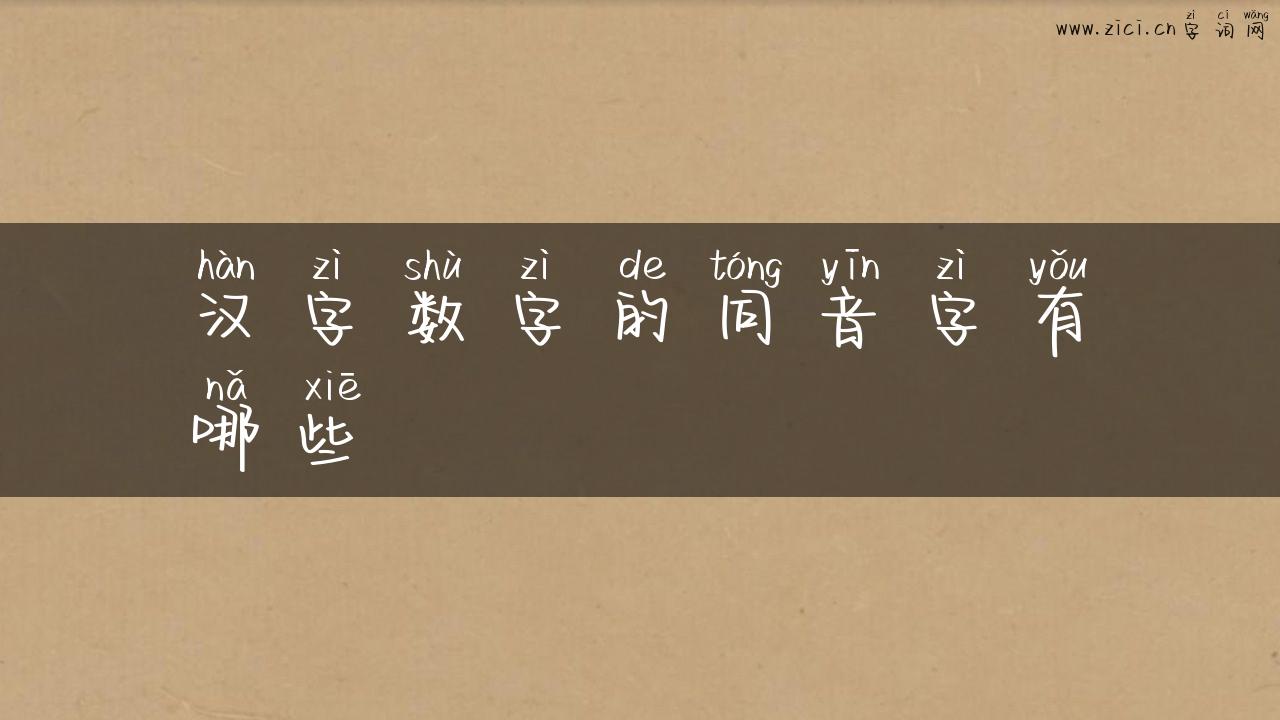 zì cí wǎng
www.zici.cn字词网
hàn zì shù zì de tóng yīn zì yǒu
汉字数字的同音字有
nǎ xiē
哪些